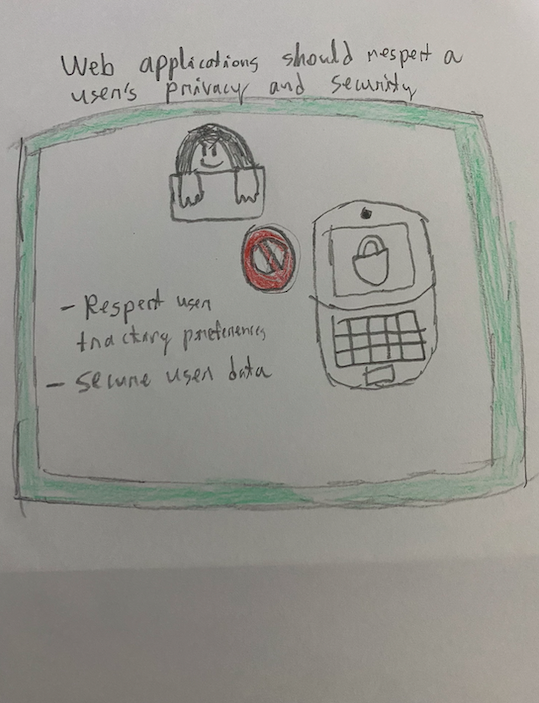 Web applications should respect a
user's privacy and security
- Respect user
tracking preferences
- Secure user data